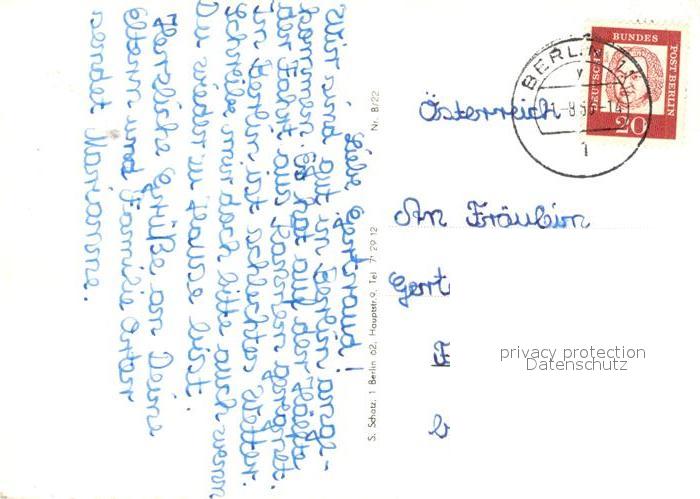 Liebe Gertraud!
Wir sind gut in Berlin ange-
kommen. Es hat auf der Hälfte
der Fahrt aus Kannen geregnet.
In Berlin ist schlechtes Wetter.
Schreibe mir doch bitte auch wenn
Du wieder zu Hause bist.
Herzliche Grüße an Deine
Eltern und Familie
sendet Marianne.
Nr. B/22
S. Schatz, 1 Berlin 62, Hauptstr. 9, Tel. 71 29 12
DEUTSCHE BUNDESPOST BERLIN
20
BERLIN
1
Österreich
An Fräulein
Gert
privacy protection
Datenschutz